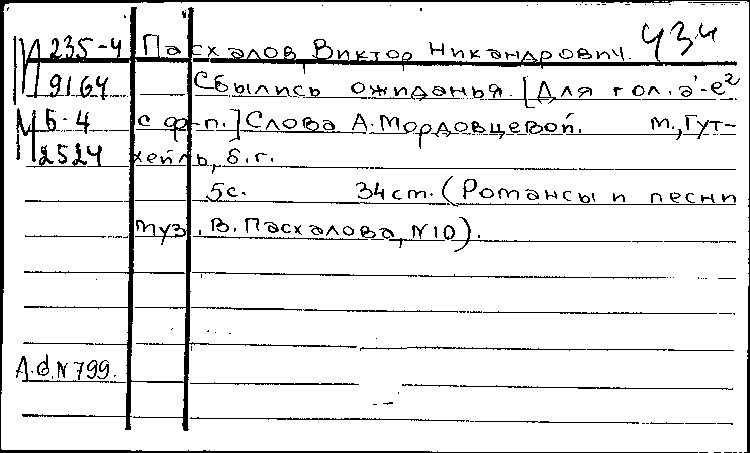 И 235-4 Пасхалов, Виктор Никандрович. 434
9164 Сбылись ожиданья. [Для гол. a'-e²
М Б-4 с ф-п.] Слова А. Мордовцевой. М., Гут-
2524 хейль, б.г.
5с. 34 ст. (Романсы и песни
муз. В. Пасхалова, N10).
А.д.N799.